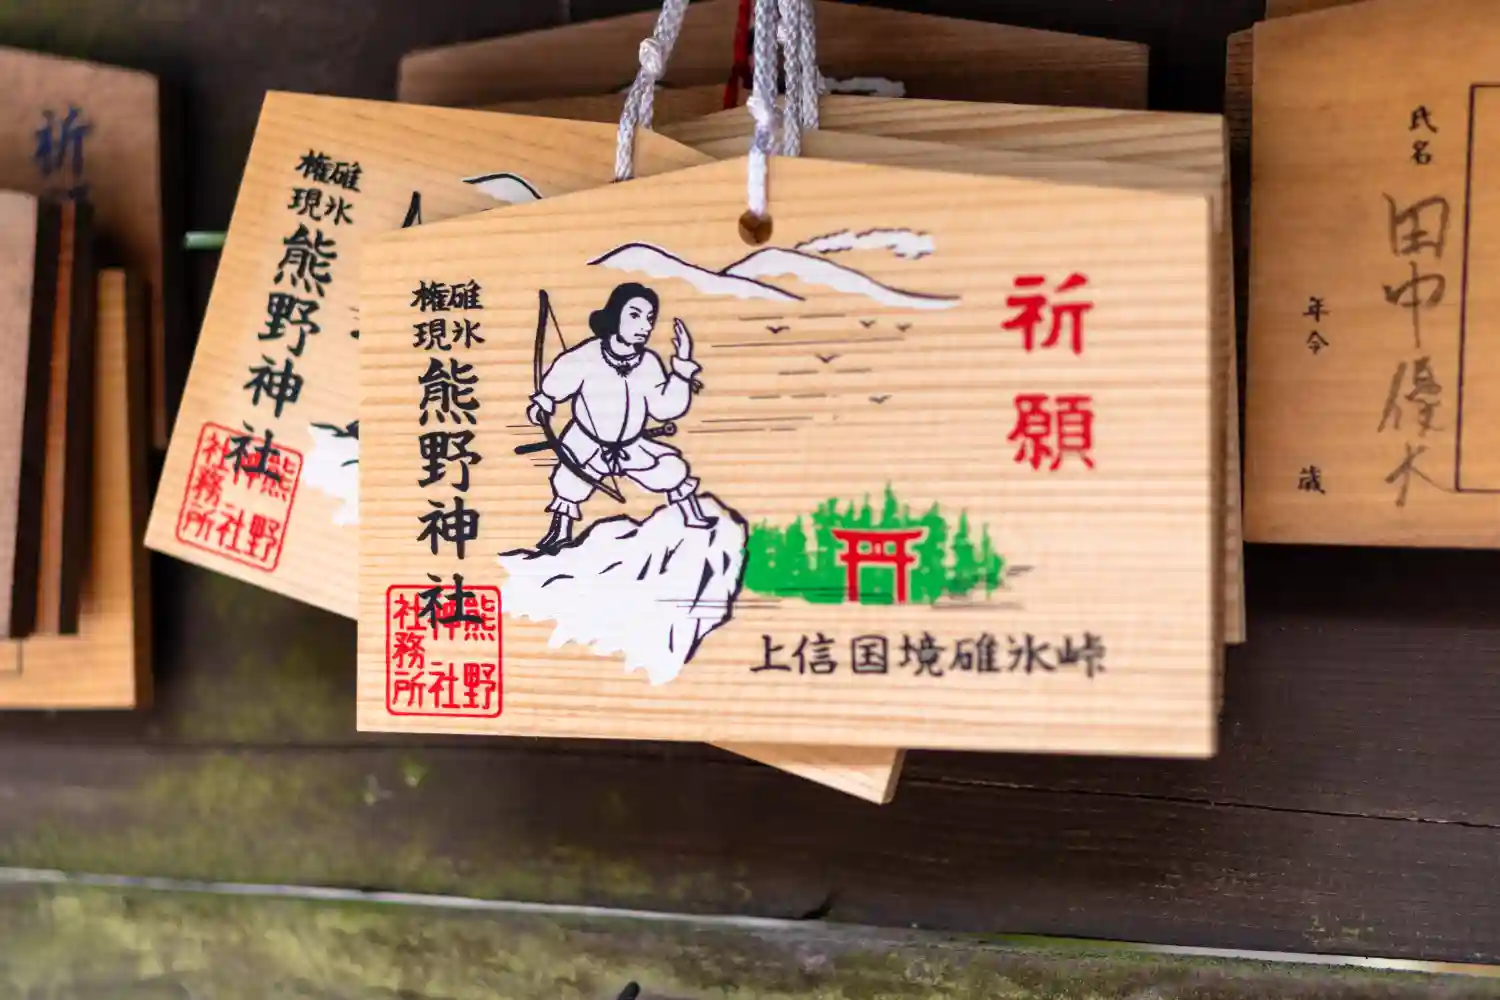 祈
碓氷
権現
熊野神社
熊野
神社
社務所
碓氷
権現
熊野神社
熊野
神社
社務所
祈願
上信国境碓氷峠
氏名
田中優大
年令
歳